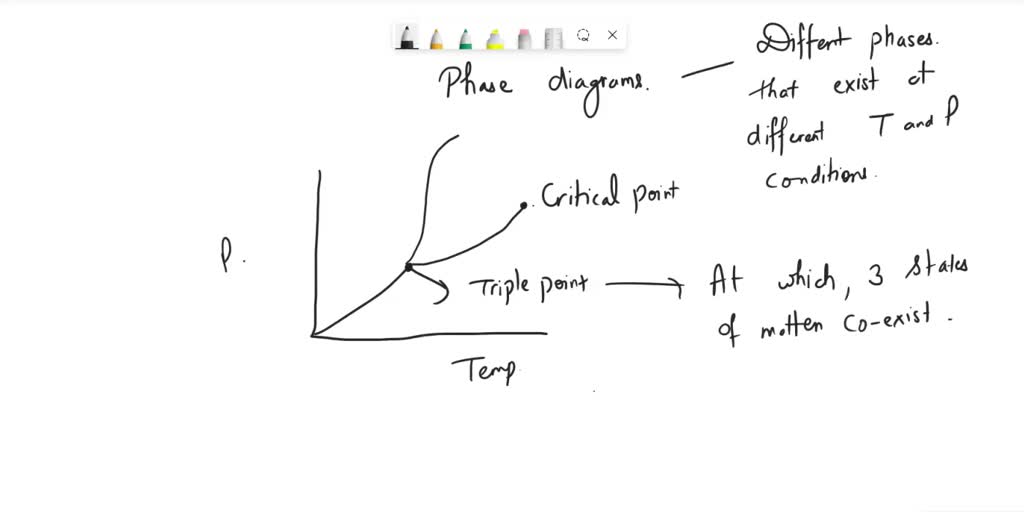 Phase diagrams.
Diffent phases.
that exist at
different T and P
conditions.
Critical point
P.
Triple point
At which, 3 states
of matten co-exist.
Temp.